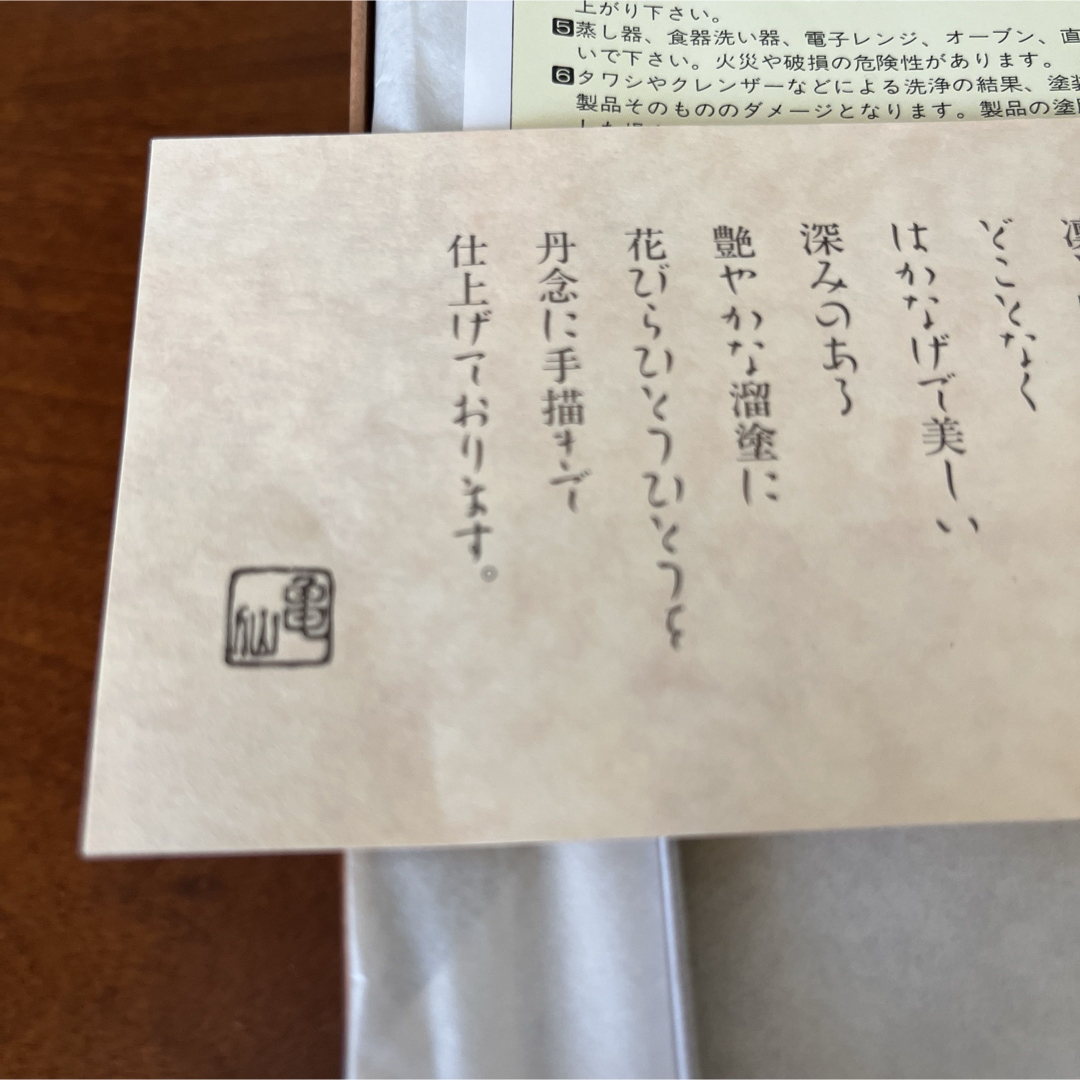 上がり下さい。
5 蒸し器、食器洗い器、電子レンジ、オーブン、直
いで下さい。火災や破損の危険性があります。
6 タワシやクレンザーなどによる洗浄の結果、塗装
製品そのもののダメージとなります。製品の塗
どことなく
はかなげで美しい
深みのある
艶やかな溜塗に
花びらひとつひとつを
丹念に手描きで
仕上げております。
亀仙